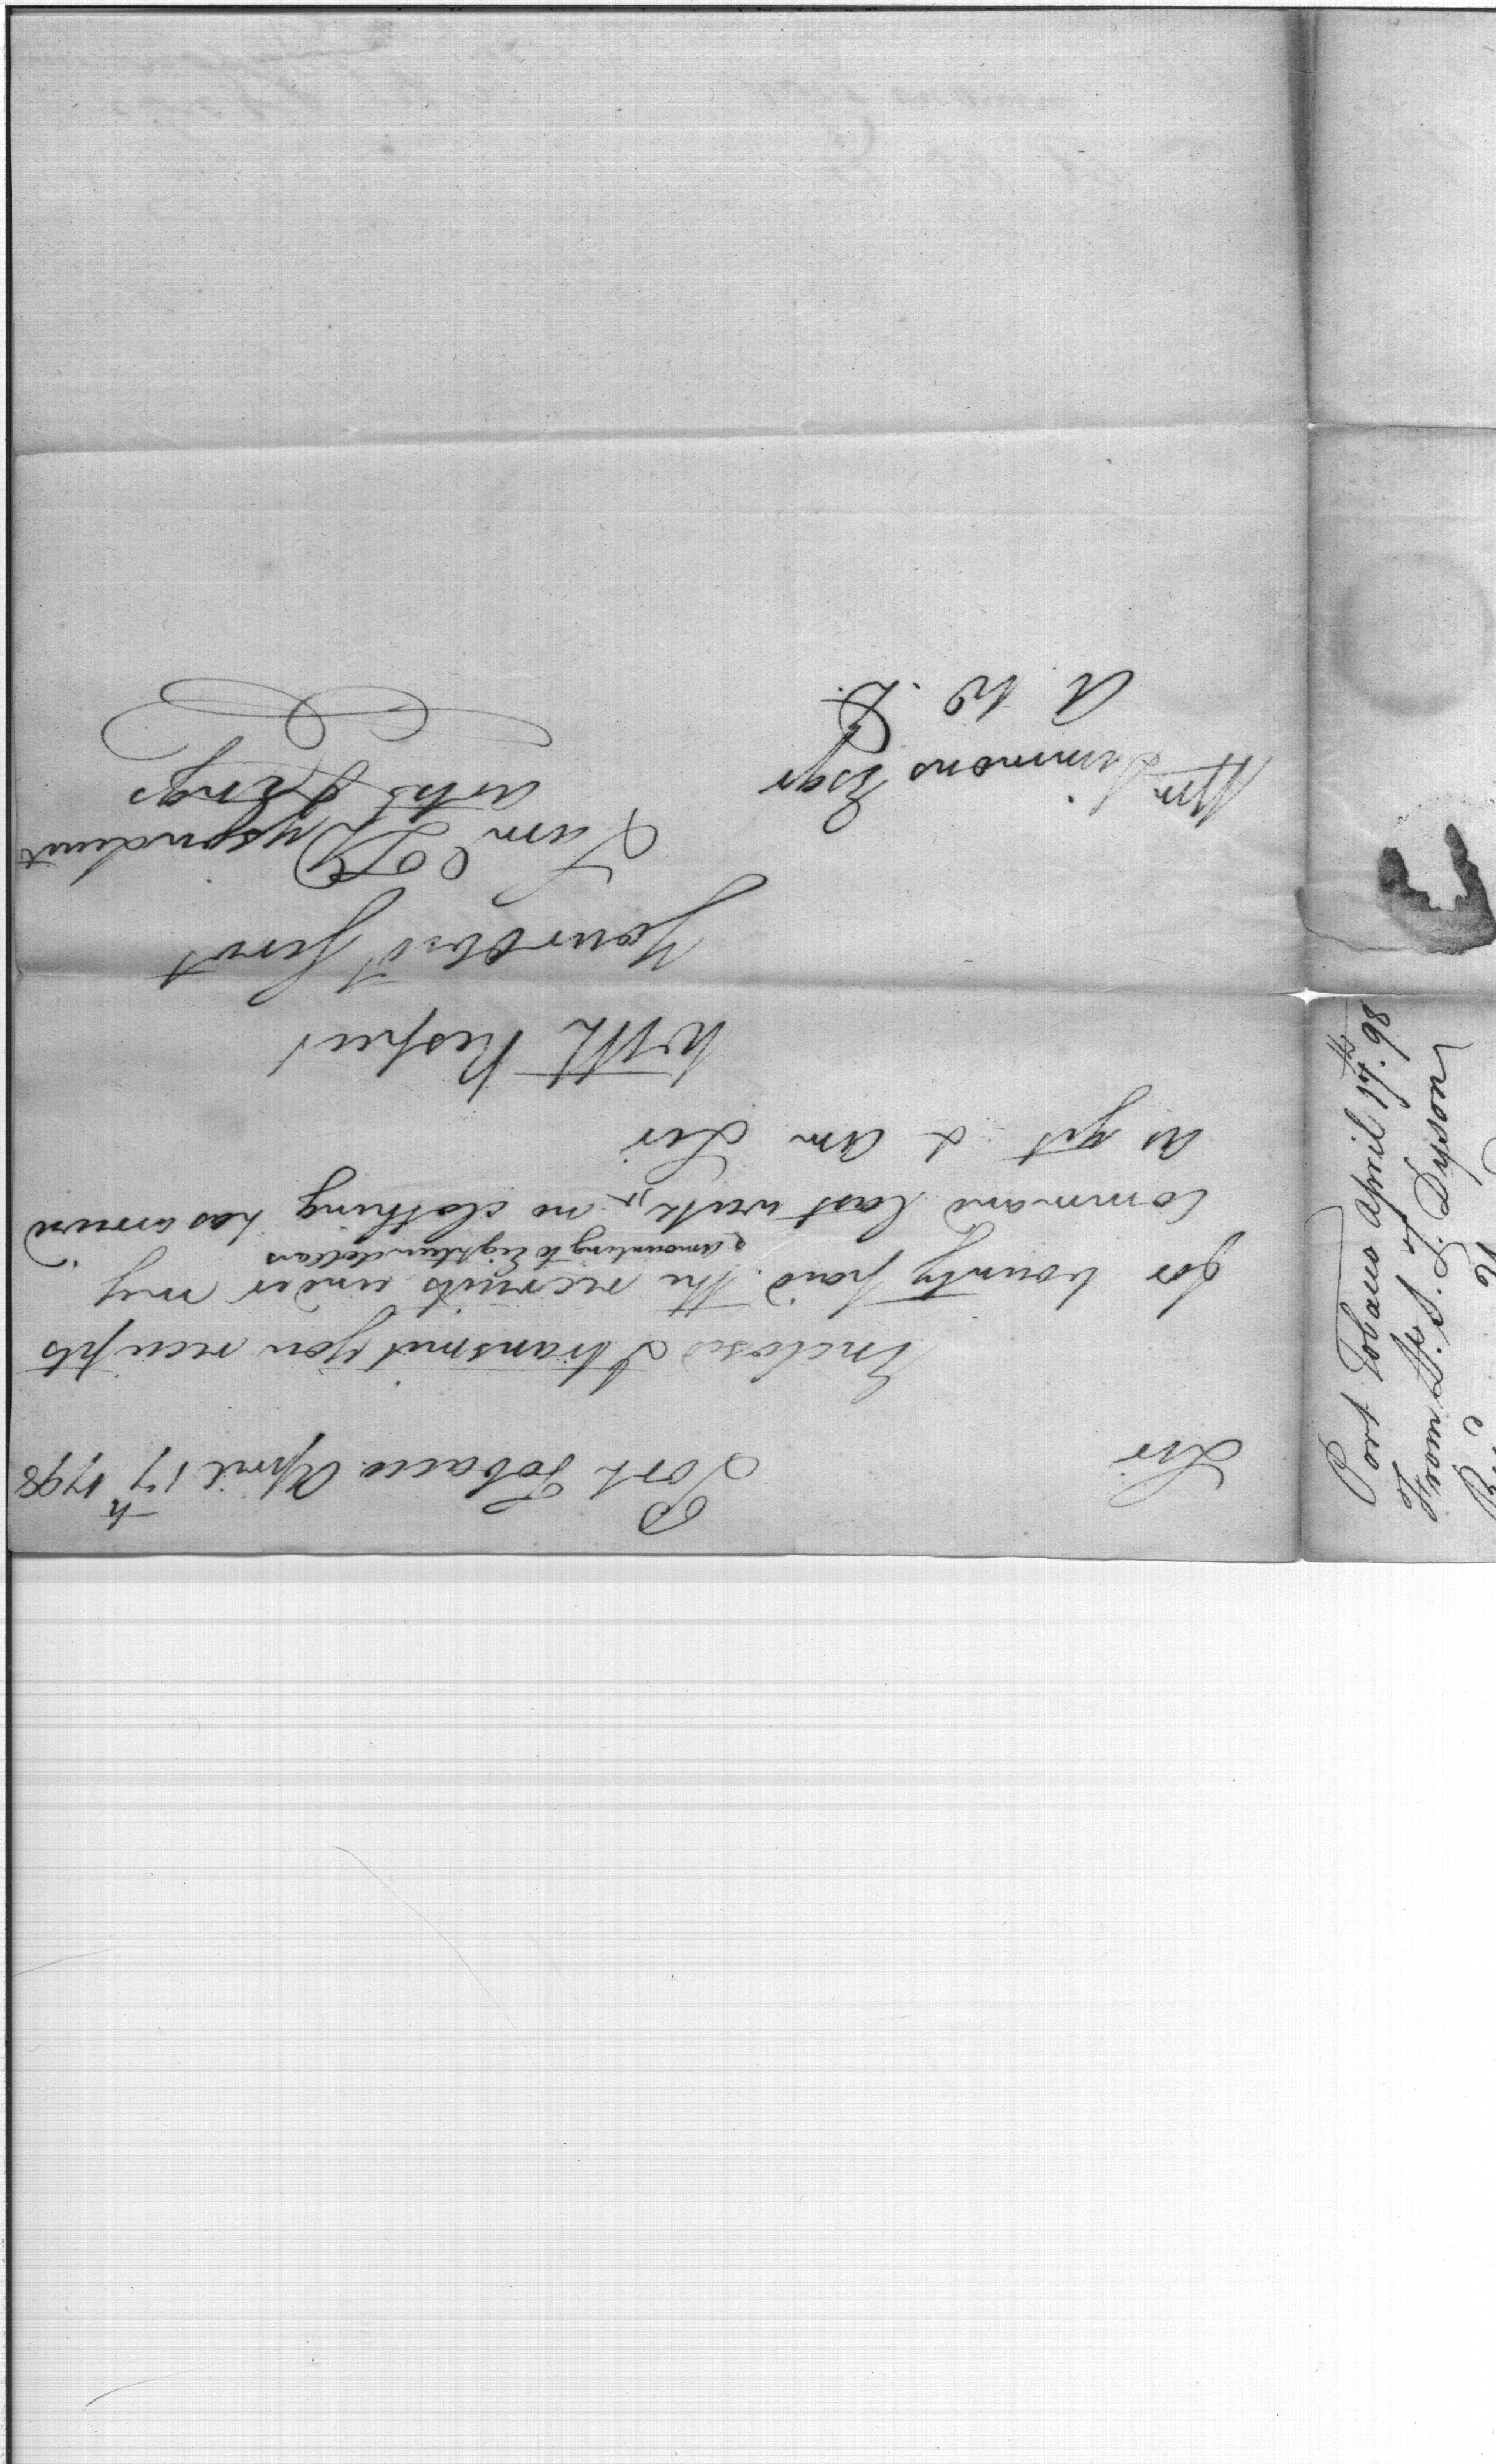 Port Tobacco April 17th 1798
Sir
Enclosed I transmit you receipts
for bounty paid the recruits under my
& amounting to Eighteen dollars
Command last week, no clothing has arrived
as yet & am Sir
With Respect
Your Obed Servt
Sam T Dyson Lieut
Arts & Engs
Wm Simmons Esqr
A. W. D.
Port Tobacco April 17th. 98
From S. T. Dyson